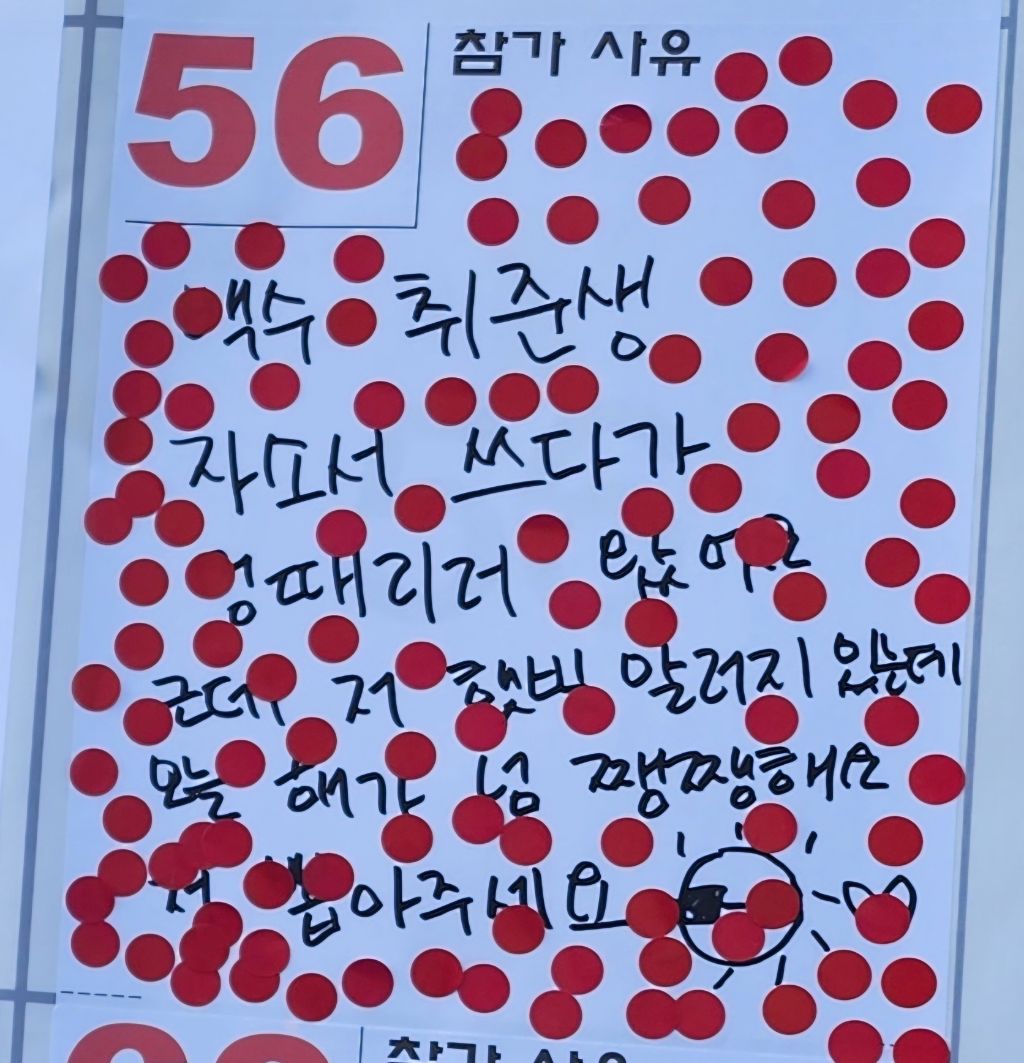 56
참가 사유
백수 취준생
자소서 쓰다가
멍때리러 왔어요
근데 저 햇빛 알러지 있는데
오늘 해가 넘 쨍쨍해요
저 뽑아주세요
참가 사유